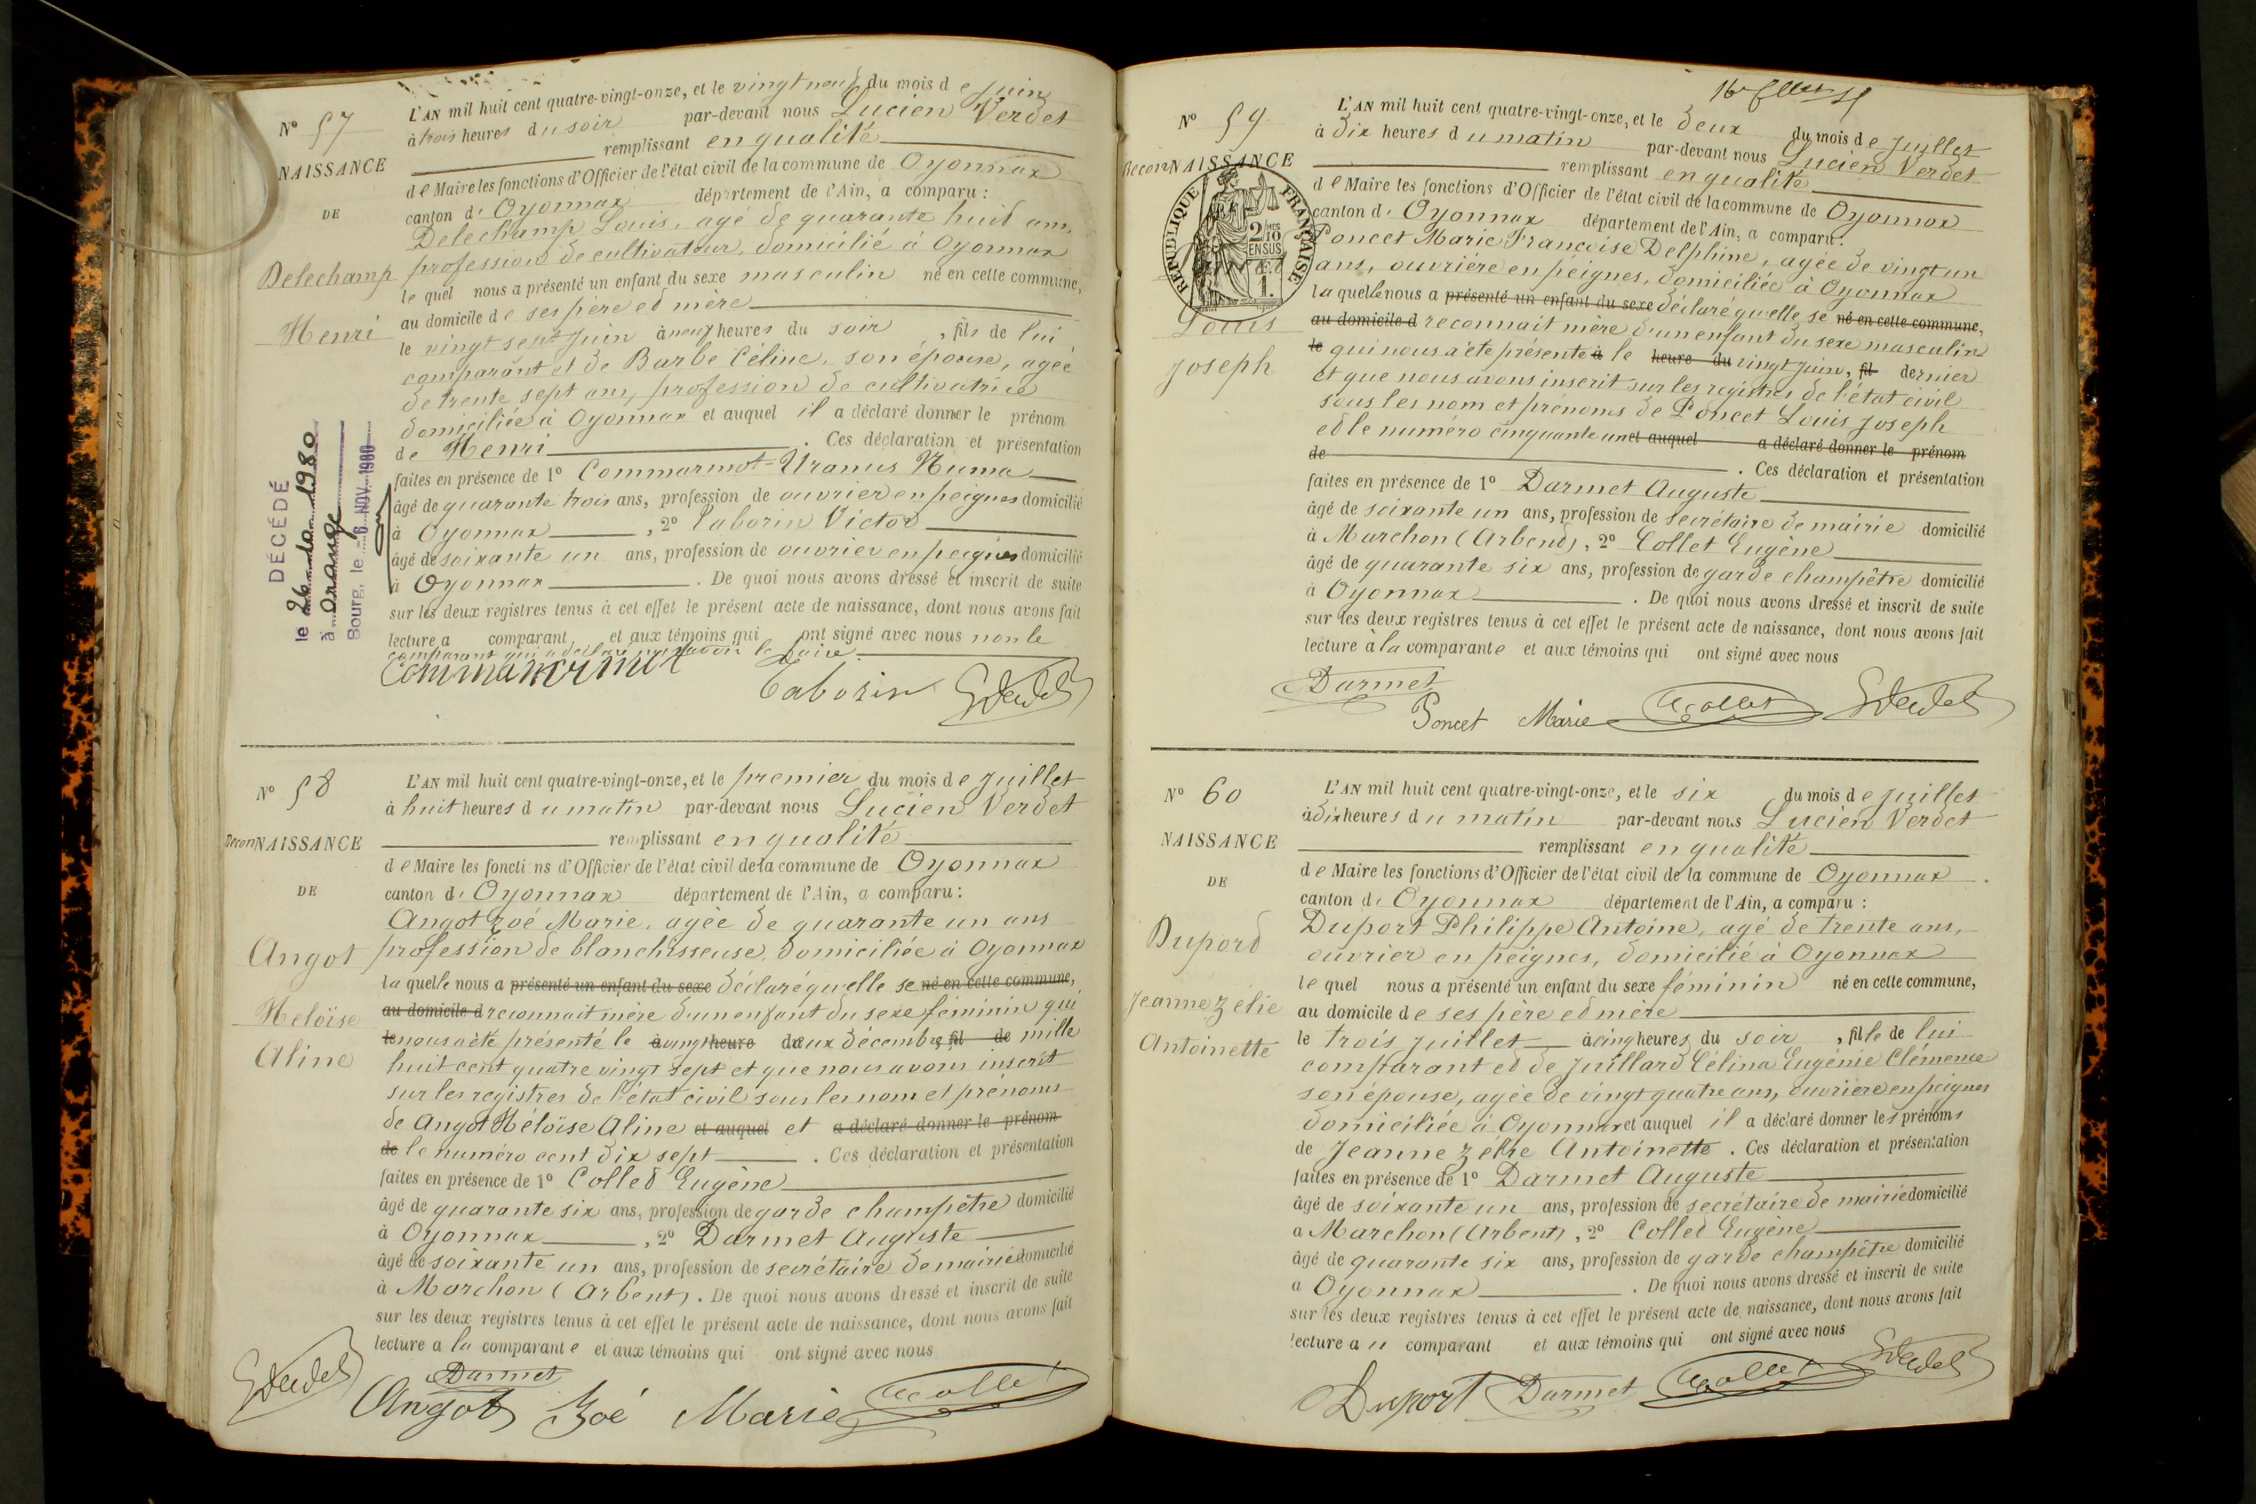 Nº 57
NAISSANCE
DE
Delechamp
Henri
DÉCÉDÉ
le 26-10-1980
à Orange
Bourg, le 6 NOV. 1980
L'AN mil huit cent quatre-vingt-onze, et le vingt neuf du mois de juin
à trois heures du soir par-devant nous Lucien Verdet
remplissant en qualité
de Maire les fonctions d'Officier de l'état civil de la commune de Oyonnax
canton d' Oyonnax département de l'Ain, a comparu :
Delechamp Louis, agé de quarante huit ans,
profession de cultivateur, domicilié à Oyonnax
le quel nous a présenté un enfant du sexe masculin né en cette commune,
au domicile de ses père et mère
le vingt sept juin à neuf heures du soir , fils de lui
comparant et de Barbe Céline, son épouse, agée
de trente sept ans, profession de cultivatrice
domiciliée à Oyonnax et auquel il a déclaré donner le prénom
de Henri . Ces déclaration et présentation
faites en présence de 1º Commarmot-Uranus Numa
âgé de quarante trois ans, profession de ouvrier en peignes domicilié
à Oyonnax , 2º Taborin Victor
âgé de soixante un ans, profession de ouvrier en peignes domicilié
à Oyonnax . De quoi nous avons dressé et inscrit de suite
sur les deux registres tenus à cet effet le présent acte de naissance, dont nous avons fait
lecture a comparant, et aux témoins qui ont signé avec nous non le
comparant qui a déclaré ne savoir le faire.
Commarmot Taborin Verdet
Nº 58
Recon NAISSANCE
DE
Angot
Héloïse
Aline
L'AN mil huit cent quatre-vingt-onze, et le premier du mois de juillet
à huit heures du matin par-devant nous Lucien Verdet
remplissant en qualité
de Maire les foncti ns d'Officier de l'état civil de la commune de Oyonnax
canton d' Oyonnax département de l'Ain, a comparu :
Angot Zoé Marie, agée de quarante un ans
profession de blanchisseuse, domiciliée à Oyonnax
la quelle nous a présenté un enfant du sexe déclaré qu'elle se né en cette commune,
au domicile d reconnait mère d'un enfant du sexe féminin qui
le nous a été présenté le à vingt heure du deux décembre, fil de mille
huit cent quatre vingt sept et que nous avons inscrit
sur les registres de l'état civil sous les nom et prénoms
de Angot Héloïse Aline et auquel et a déclaré donner le prénom
de le numéro cent dix sept . Ces déclaration et présentation
faites en présence de 1º Collet Eugène
âgé de quarante six ans, profession de garde champêtre domicilié
à Oyonnax , 2º Darmet Auguste
âgé de soixante un ans, profession de secrétaire de mairie domicilié
à Marchon (Arbent). De quoi nous avons dressé et inscrit de suite
sur les deux registres tenus à cet effet le présent acte de naissance, dont nous avons fait
lecture a la comparante et aux témoins qui ont signé avec nous
Verdet Darmet
Angot Zoé Marie Collet
Nº 59
Recon NAISSANCE
RÉPUBLIQUE FRANÇAISE
2/10
EN SUS
1.
Louis
Joseph
L'AN mil huit cent quatre-vingt-onze, et le deux du mois de juillet
à dix heures du matin par-devant nous Lucien Verdet
remplissant en qualité
de Maire les fonctions d'Officier de l'état civil de la commune de Oyonnax
canton d' Oyonnax département de l'Ain, a comparu :
Poncet Marie Françoise Delphine, agée de vingt un
ans, ouvrière en peignes, domiciliée à Oyonnax
la quelle nous a présenté un enfant du sexe déclaré qu'elle se né en cette commune,
au domicile d reconnait mère d'un enfant du sexe masculin
le qui nous a été présenté à le heure du vingt juin, fil dernier
et que nous avons inscrit sur les registres de l'état civil
sous les nom et prénoms de Poncet Louis Joseph
et le numéro cinquante un et auquel a déclaré donner le prénom
de . Ces déclaration et présentation
faites en présence de 1º Darmet Auguste
âgé de soixante un ans, profession de secrétaire de mairie domicilié
à Marchon (Arbent), 2º Collet Eugène
âgé de quarante six ans, profession de garde champêtre domicilié
à Oyonnax . De quoi nous avons dressé et inscrit de suite
sur les deux registres tenus à cet effet le présent acte de naissance, dont nous avons fait
lecture à la comparante et aux témoins qui ont signé avec nous
Darmet
Poncet Marie Collet Verdet
Nº 60
NAISSANCE
DE
Duport
Jeanne Zélie
Antoinette
L'AN mil huit cent quatre-vingt-onze, et le six du mois de juillet
à dix heures du matin par-devant nous Lucien Verdet
remplissant en qualité
de Maire les fonctions d'Officier de l'état civil de la commune de Oyonnax
canton d' Oyonnax département de l'Ain, a comparu :
Duport Philippe Antoine, agé de trente ans,
ouvrier en peignes, domicilié à Oyonnax
le quel nous a présenté un enfant du sexe féminin né en cette commune,
au domicile de ses père et mère
le trois juillet à cinq heures du soir , fille de lui
comparant et de Juillard Célina Eugénie Clémence
son épouse, agée de vingt quatre ans, ouvrière en peignes
domiciliée à Oyonnax et auquel il a déclaré donner les prénoms
de Jeanne Zélie Antoinette . Ces déclaration et présentation
faites en présence de 1º Darmet Auguste
âgé de soixante un ans, profession de secrétaire de mairie domicilié
a Marchon (Arbent), 2º Collet Eugène
âgé de quarante six ans, profession de garde champêtre domicilié
a Oyonnax . De quoi nous avons dressé et inscrit de suite
sur les deux registres tenus à cet effet le présent acte de naissance, dont nous avons fait
lecture a u comparant et aux témoins qui ont signé avec nous
Duport Darmet Collet Verdet